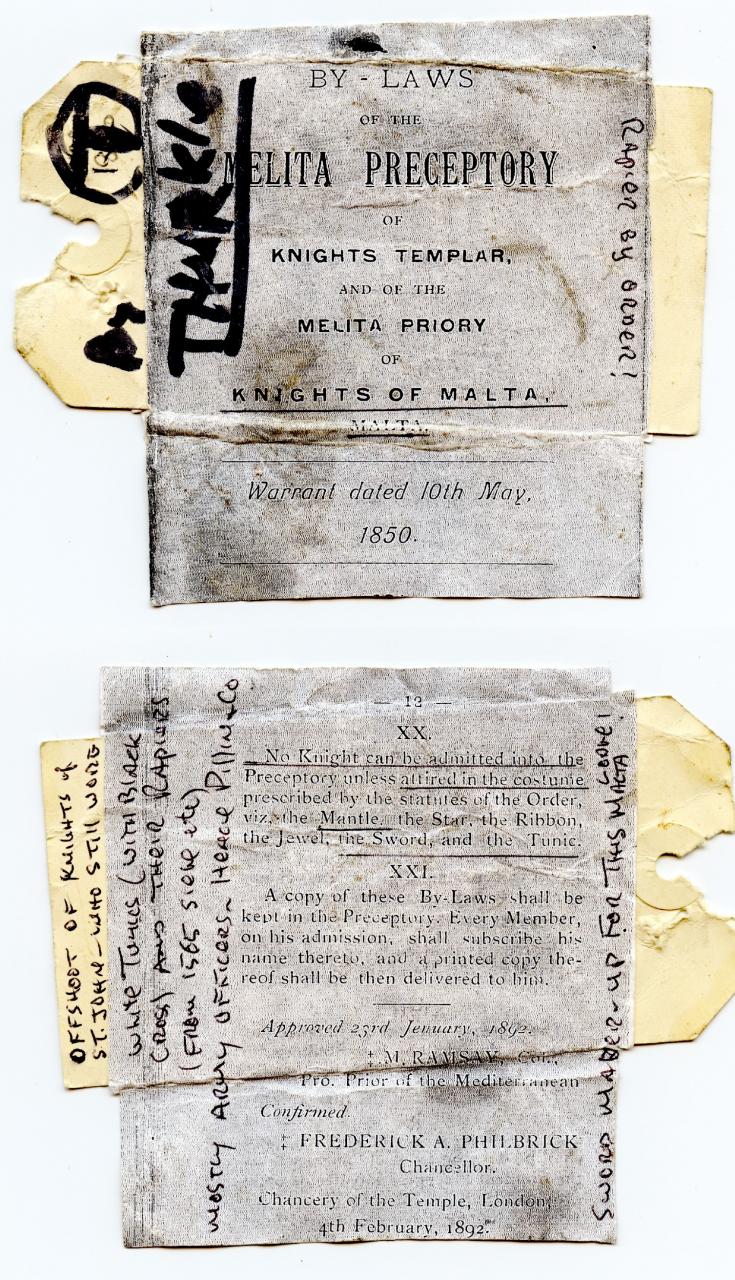 BY - LAWS
OF THE
MELITA PRECEPTORY
OF
KNIGHTS TEMPLAR,
AND OF THE
MELITA PRIORY
OF
KNIGHTS OF MALTA,
MALTA.
Warrant dated 10th May,
1850.
By
THURKLE
RAPIER By ORDER!
— 12 —
XX.
No Knight can be admitted into the
Preceptory unless attired in the costume
prescribed by the statutes of the Order,
viz, the Mantle, the Star, the Ribbon,
the Jewel, the Sword, and the Tunic.
XXI.
A copy of these By-Laws shall be
kept in the Preceptory. Every Member,
on his admission, shall subscribe his
name thereto, and a printed copy the-
reof shall be then delivered to him.
Approved 23rd Jenuary, 1892.
‡ M. RAMSAY, Col.,
Pro. Prior of the Mediterranean
Confirmed.
‡ FREDERICK A. PHILBRICK
Chancellor.
Chancery of the Temple, London,
4th February, 1892.
OFFSHOOT OF KNIGHTS of
ST. JOHN - WHO STILL WORE
WHITE TUNICS (WITH BLACK
CROSS) AND THEIR RAPIERS
(FROM 1565 SIEGE etc)
MOSTLY ARMY OFFICERS. HENCE Pillin & Co
SWORD MADER-UP FOR THIS MALTA
LODGE!